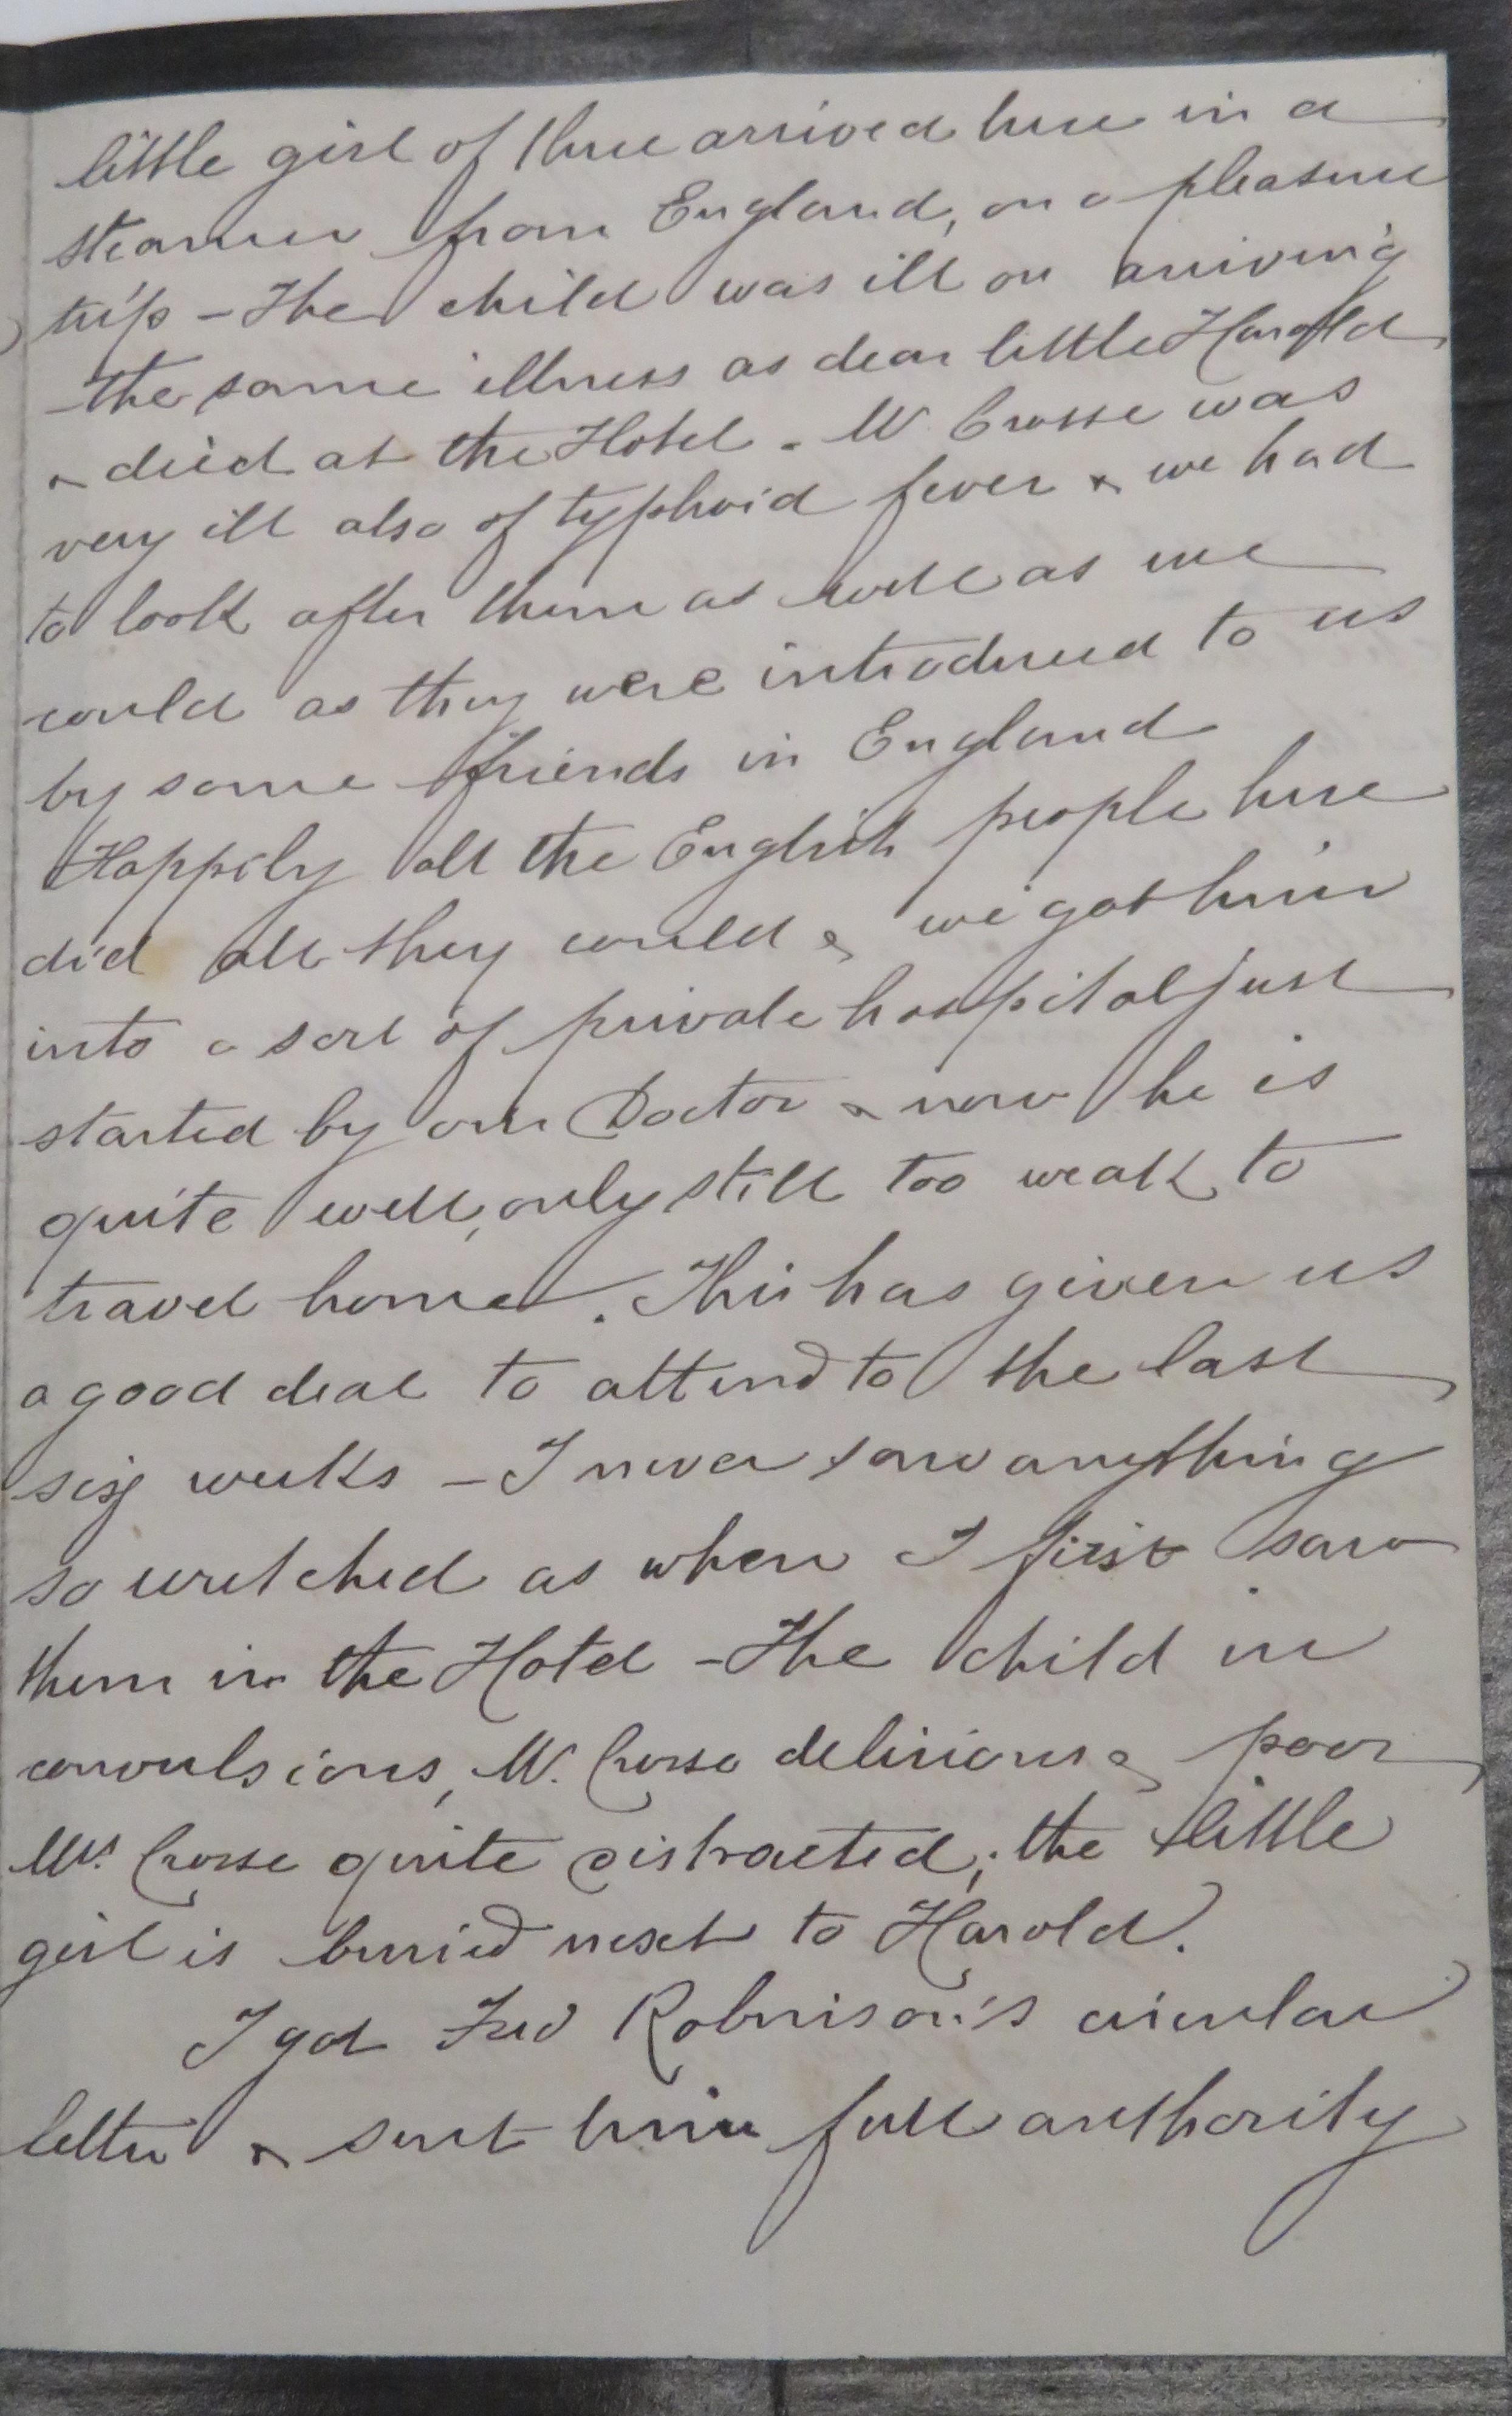 little girl of three arrived here in a
steamer from England, on a pleasure
trip - The child was ill on arriving
- the same illness as dear little Harold
& died at the Hotel. Mr. Crosse was
very ill also of typhoid fever & we had
to look after them as well as we
could as they were introduced to us
by some friends in England
Happily all the English people here
did all they could & we got him
into a sort of private hospital just
started by our Doctor & now he is
quite well, only still too weak to
travel home. This has given us
a good deal to attend to the last
six weeks - I never saw anything
so wretched as when I first saw
them in the Hotel - The child in
convulsions, Mr. Crosse delirious & poor
Mrs. Crosse quite distracted; the little
girl is buried next to Harold.
I got Fred Robinson's circular
letter & sent him full authority